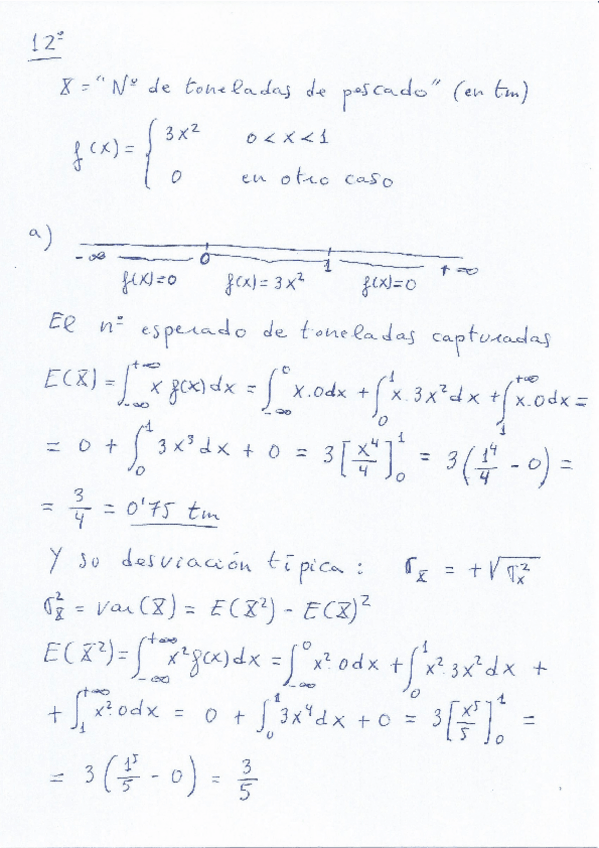 12º
X = "Nº de toneladas de pescado" (en tm)
f(x) = { 3x² 0 < x < 1
0 en otro caso
a)
-∞ 0 1 +∞
f(x)=0 f(x)=3x² f(x)=0
El nº esperado de toneladas capturadas
E(X) = ∫_{-∞}^{+∞} x f(x) dx = ∫_{-∞}^{0} x·0dx + ∫_{0}^{1} x·3x² dx + ∫_{1}^{+∞} x·0dx =
= 0 + ∫_{0}^{1} 3x³ dx + 0 = 3 [x⁴/4]_{0}^{1} = 3 (1⁴/4 - 0) =
= 3/4 = 0'75 tm
Y so desviación típica: σ_X = +√σ_x²
σ_X² = var(X) = E(X²) - E(X)²
E(X²) = ∫_{-∞}^{+∞} x² f(x) dx = ∫_{-∞}^{0} x²·0dx + ∫_{0}^{1} x²·3x² dx +
+ ∫_{1}^{+∞} x²·0dx = 0 + ∫_{0}^{1} 3x⁴ dx + 0 = 3 [x⁵/5]_{0}^{1} =
= 3 (1⁵/5 - 0) = 3/5